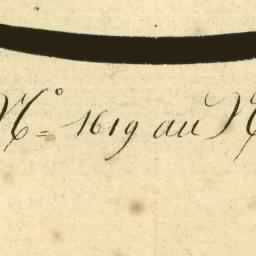 N.° = 1619 au N